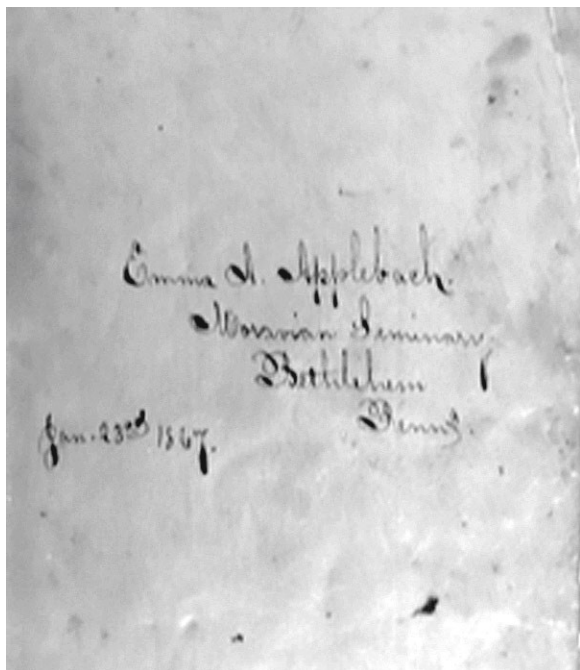 Emma A. Applebach.
Moravian Seminary,
Bethlehem
Penn<sup>a</sup>.
Jan. 23rd 1867.